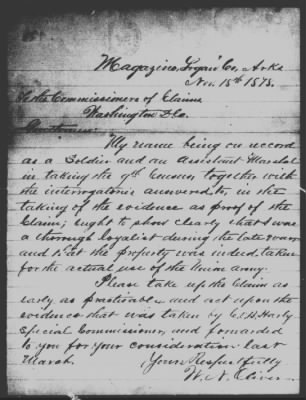 Magazine, Logan Co, Arks
Nov. 15th 1878.
To the Commissioners of Claims
Washington D.C.
Gentlemen:
My name being on record
as a Soldier and an Assistant Marshal
in taking the 9th Census, together with
the interrogatories answered to, in the
taking of the evidence as proof of the
Claim; ought to show clearly that I was
a thorough loyalist during the late war,
and that the property was indeed, taken
for the actual use of the Union army.
Please take up the Claim as
early as practicable and act upon the
evidence that was taken by
Special Commissioner, and forwarded
to you for your consideration last
March.
Yours Respectfully
W. N. Oliver